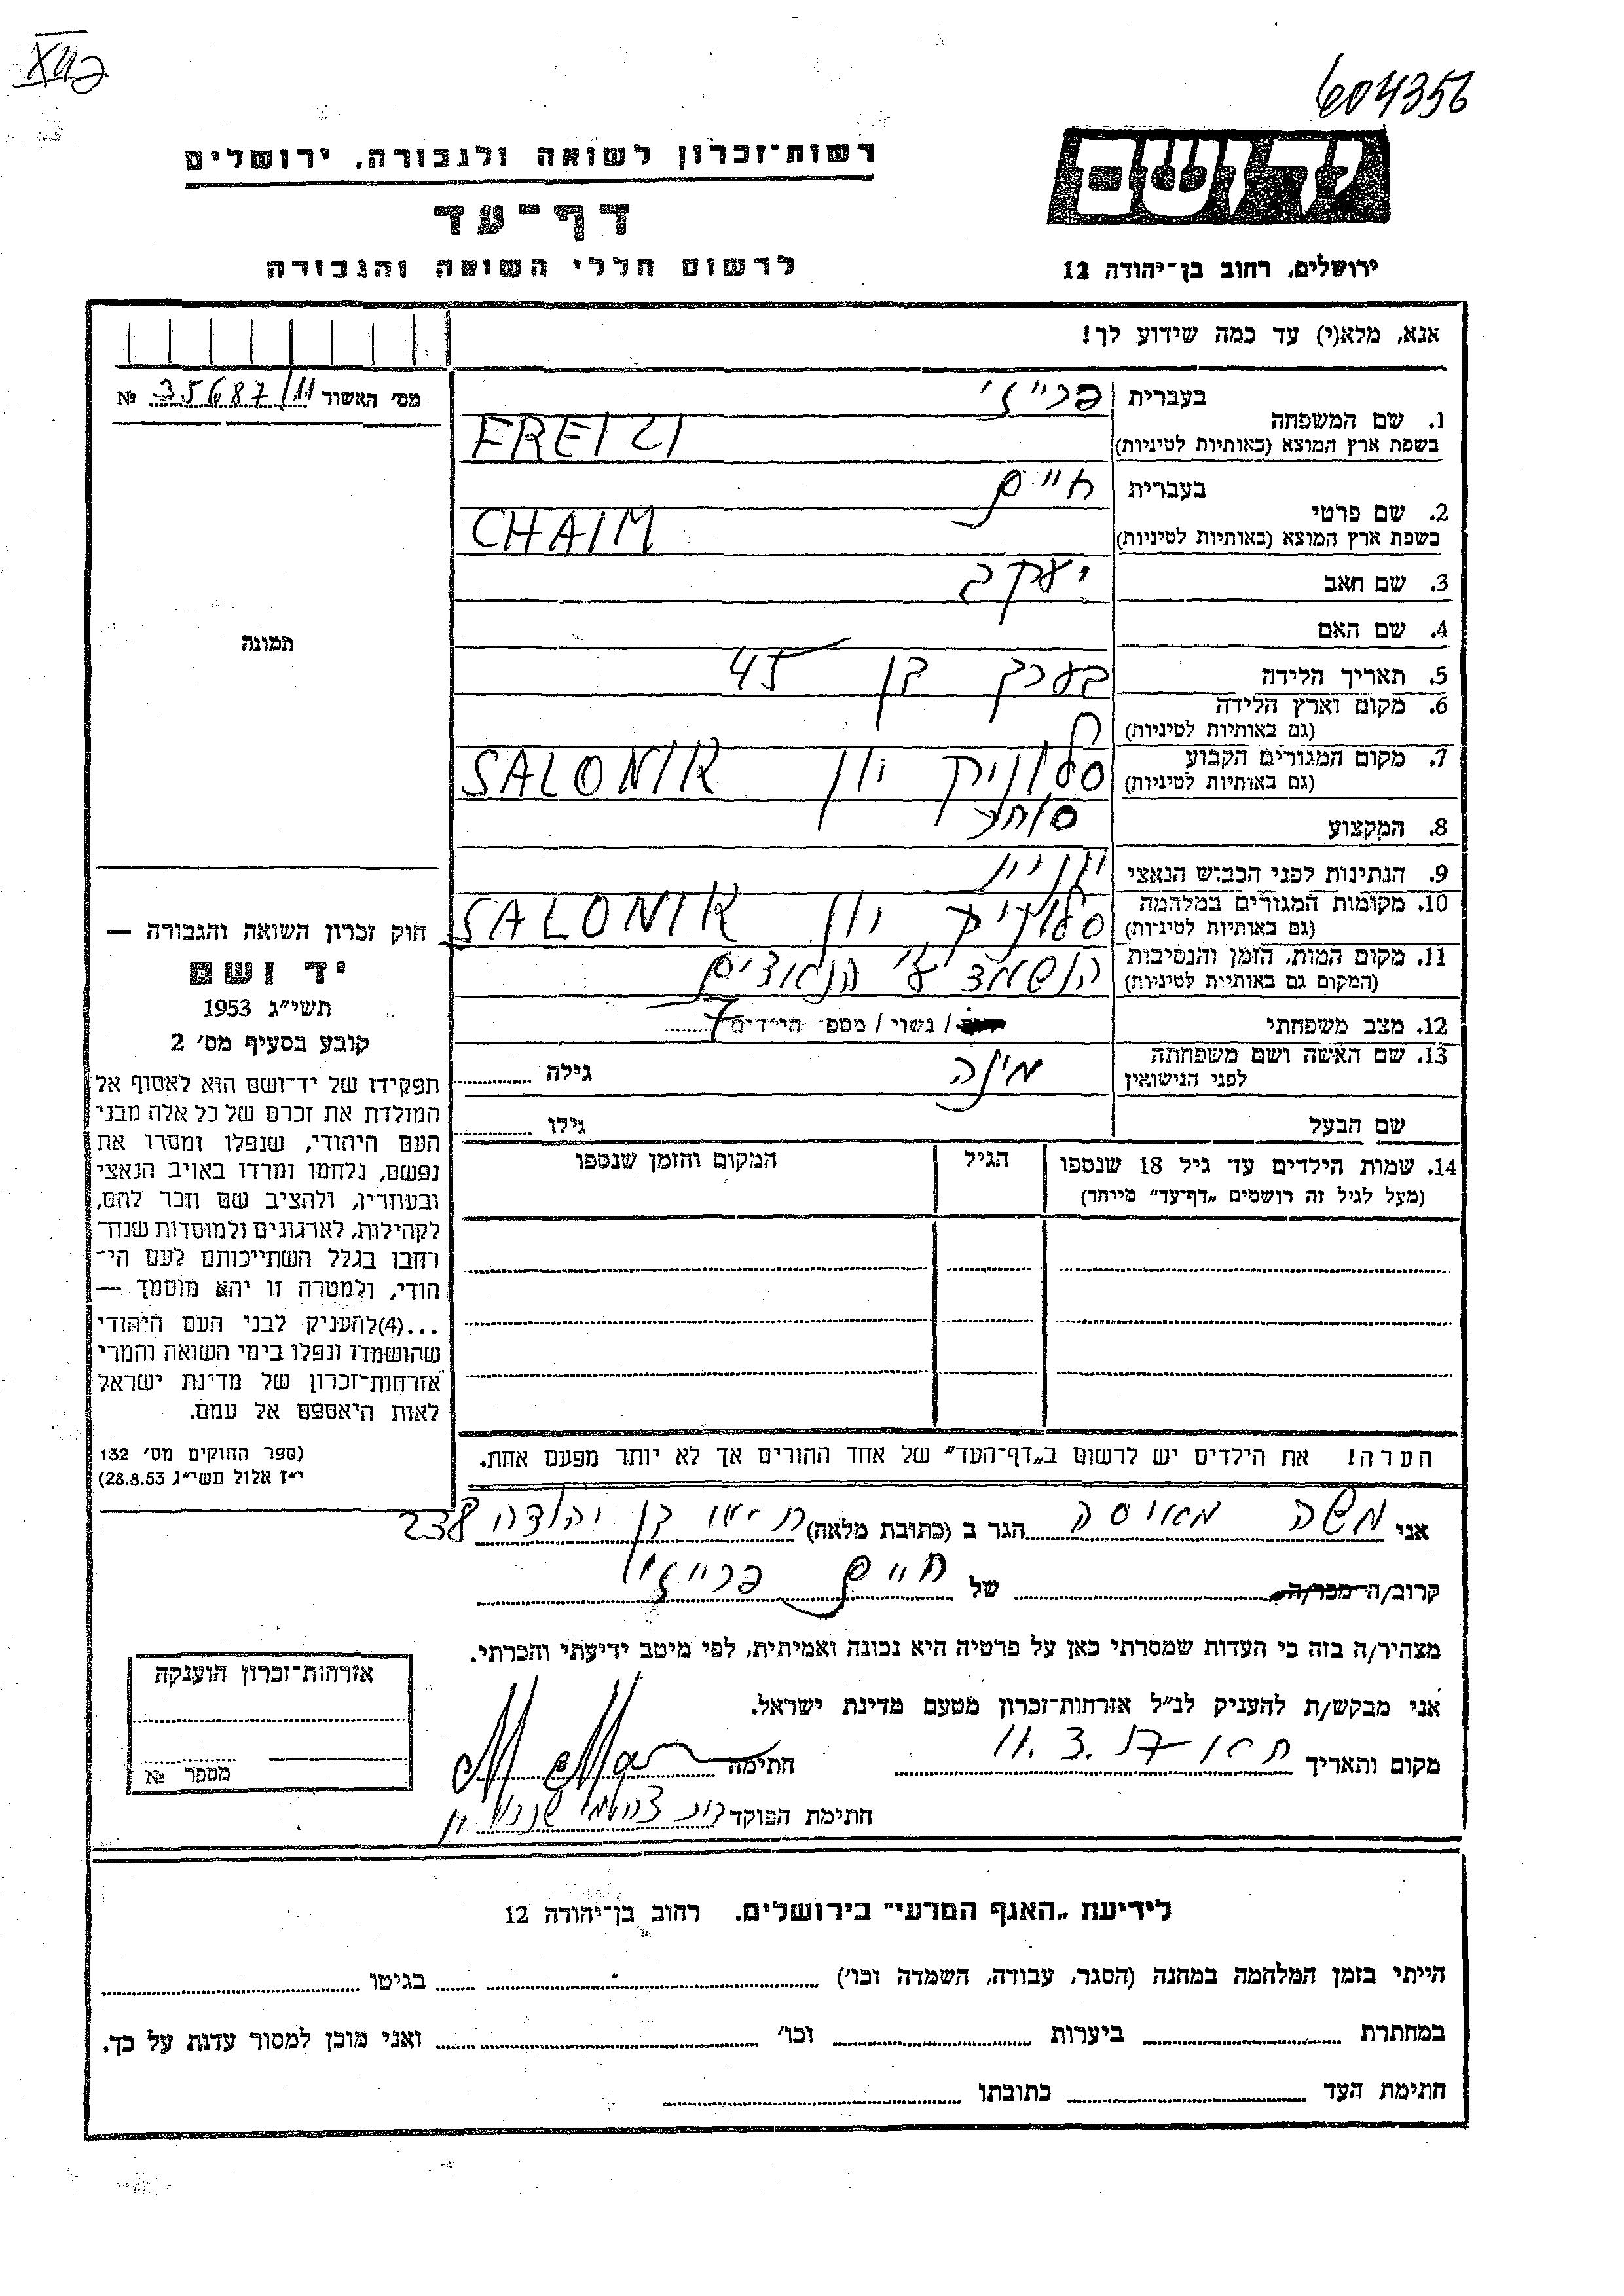 XII 2
604356
רשות־זכרון לשואה ולגבורה, ירושלים
יד ושם
דף־עד
לרשום חללי השואה והגבורה
ירושלים, רחוב בן־יהודה 12
אנא, מלא(י) עד כמה שידוע לך!
מס׳ האשור 35687/11 №
1. שם המשפחה
בעברית פרייזי
בשפת ארץ המוצא (באותיות לטיניות) FREIZI
2. שם פרטי
בעברית חיים
בשפת ארץ המוצא (באותיות לטיניות) CHAIM
3. שם האב יעקב
4. שם האם
תמונה
5. תאריך הלידה בערך בן 45
6. מקום וארץ הלידה
(גם באותיות לטיניות)
7. מקום המגורים הקבוע סלוניק יון SALONIK
(גם באותיות לטיניות)
8. המקצוע סוחר
9. הנתינות לפני הכבוש הנאצי יוני
10. מקומות המגורים במלחמה סלוניק יון SALONIK
(גם באותיות לטיניות)
11. מקום המות, הזמן והנסיבות הושמד ע״י הנאצים
(המקום גם באותיות לטיניות)
12. מצב משפחתי / נשוי / מספר הילדים 7
13. שם האשה ושם משפחתה מינה גילה
לפני הנישואין
שם הבעל גילו
14. שמות הילדים עד גיל 18 שנספו הגיל המקום והזמן שנספו
(מעל לגיל זה רושמים „דף־עד״ מיוחד)
הערה! את הילדים יש לרשום ב„דף־העד״ של אחד ההורים אך לא יותר מפעם אחת.
חוק זכרון השואה והגבורה —
יד ושם
תשי״ג 1953
קובע בסעיף מס׳ 2
תפקידו של יד־ושם הוא לאסוף אל
המולדת את זכרם של כל אלה מבני
העם היהודי, שנפלו ומסרו את
נפשם, נלחמו ומרדו באויב הנאצי
ובעוזריו, ולהציב שם וזכר להם,
לקהילות, לארגונים ולמוסדות שנח־
רבו בגלל השתייכותם לעם הי־
הודי, ולמטרה זו יהא מוסמך —
...(4)להעניק לבני העם היהודי
שהושמדו ונפלו בימי השואה והמרי
אזרחות־זכרון של מדינת ישראל
לאות היאספם אל עמם.
(ספר החוקים מס׳ 132
י״ז אלול תשי״ג 28.8.53)
אני משה מאיסה הגר ב (כתובת מלאה) ת״א בן יהודה 238
קרוב/ה מכר/ה של חיים פרייזי
מצהיר/ה בזה כי העדות שמסרתי כאן על פרטיה היא נכונה ואמיתית, לפי מיטב ידיעתי והכרתי.
אני מבקש/ת להעניק לנ״ל אזרחות־זכרון מטעם מדינת ישראל.
מקום ותאריך 11.3.57 ת״א חתימה
חתימת הפוקד
אזרחות־זכרון הוענקה
מספר №
לידיעת „האגף המדעי״ בירושלים. רחוב בן־יהודה 12
הייתי בזמן המלחמה במחנה (הסגר, עבודה, השמדה וכו׳) בגיטו
במחתרת ביערות וכו׳ ואני מוכן למסור עדות על כך.
חתימת העד כתובתו